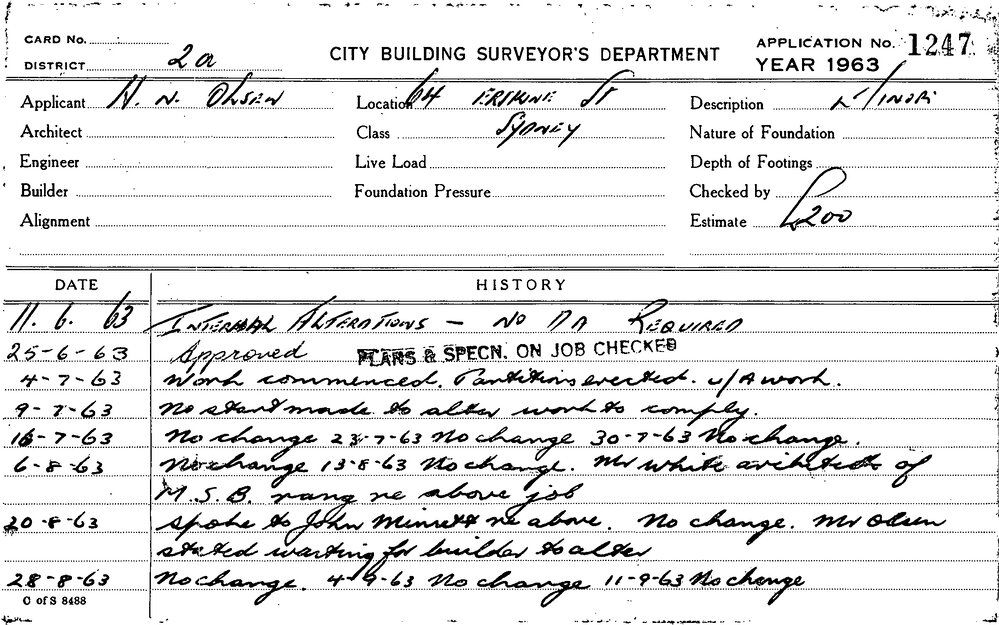 CARD No.
DISTRICT 2a
CITY BUILDING SURVEYOR'S DEPARTMENT
APPLICATION No. 1247
YEAR 1963
Applicant H. N. Olsen Location 64 ERSKINE ST Description
Architect Class SYDNEY Nature of Foundation
Engineer Live Load Depth of Footings
Builder Foundation Pressure Checked by
Alignment Estimate £200
DATE HISTORY
11. 6. 63 INTERNAL ALTERATIONS - NO DA REQUIRED
25-6-63 Approved PLANS & SPECN. ON JOB CHECKED
4-7-63 Work commenced. Partitions erected. u/A work.
9-7-63 No start made to alter work to comply.
16-7-63 No change 23-7-63 No change 30-7-63 No change.
6-8-63 No change 13-8-63 No change. Mr White architects of
M.S.B. rang re above job
20-8-63 spoke to John re above. No change. Mr Olsen
stated waiting for builder to alter
28-8-63 No change. 4-9-63 No change 11-9-63 No change
C of S 8488